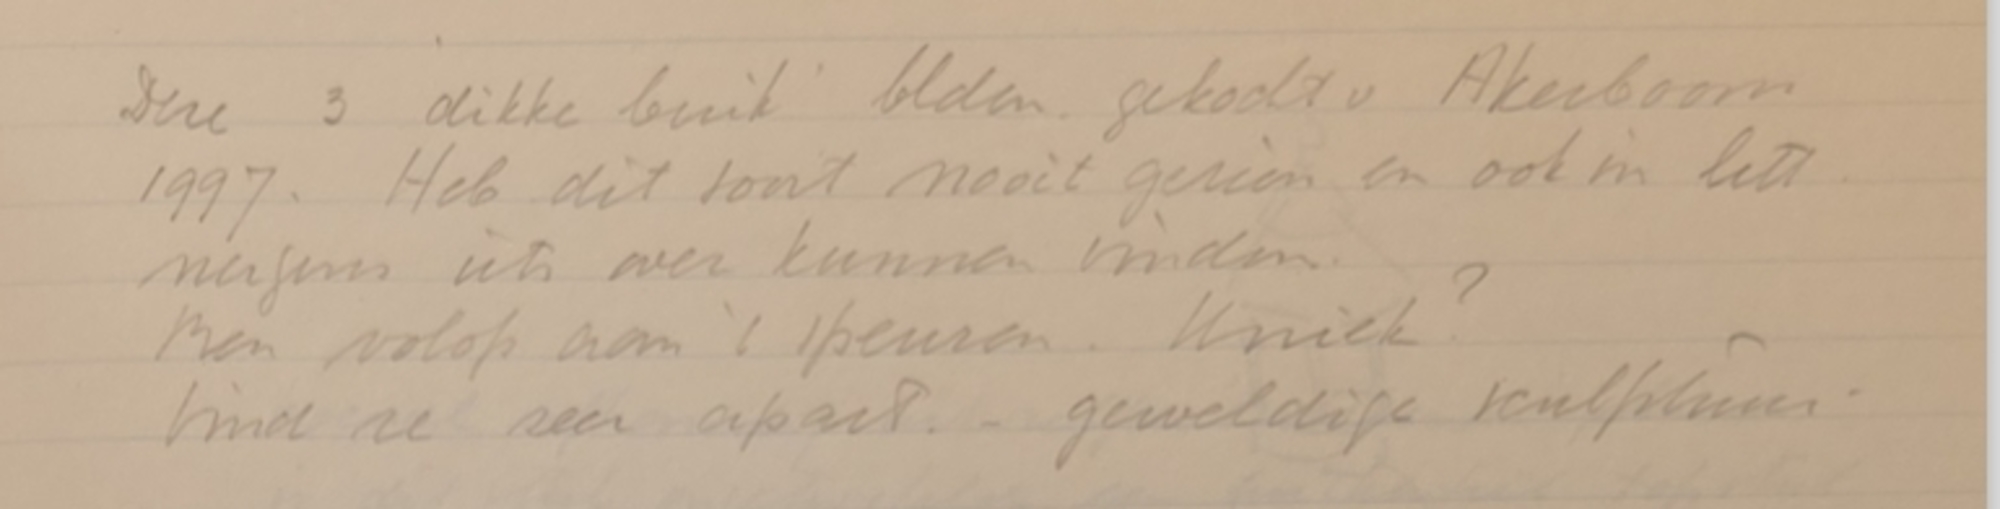 Deze 3 dikke buik' blden. gekocht v Akerboom
1997. Heb dit soort nooit gezien en ook in litt.
nergens iets over kunnen vinden.
Ben volop aan 't speuren. Uniek?
Vind ze zeer apart. - geweldige sculptuur.